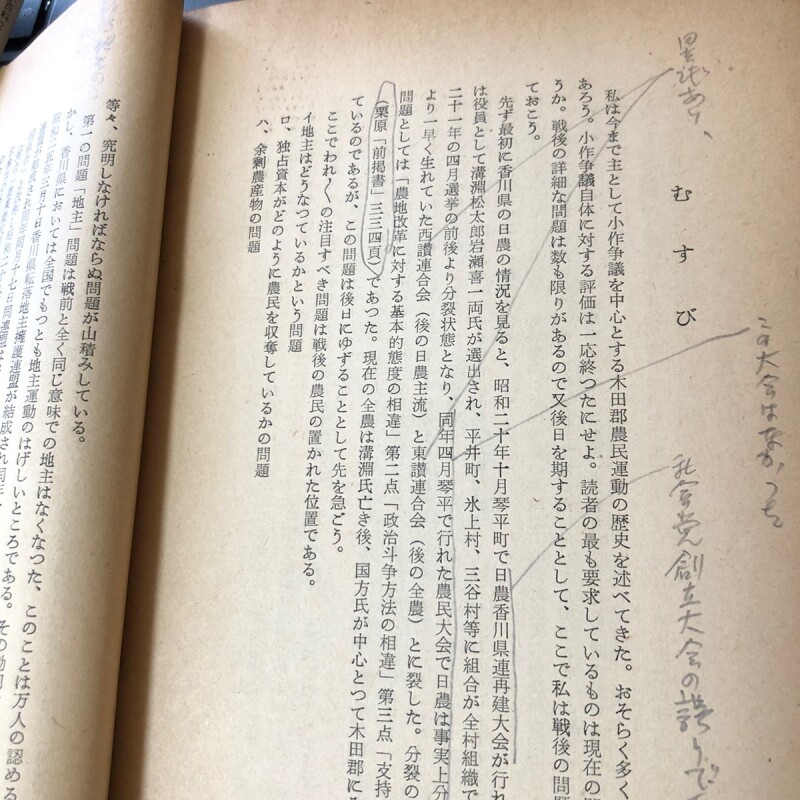 異説あり、
むすび
この大会はなかった
社会党創立大会の誤りで
私は今まで主として小作争議を中心とする木田郡農民運動の歴史を述べてきた。おそらく多く
あろう。小作争議自体に対する評価は一応終つたにせよ。読者の最も要求しているものは現在の
うか。戦後の詳細な問題は数も限りがあるので又後日を期することとして、ここで私は戦後の問題
ておこう。
先ず最初に香川県の日農の情況を見ると、昭和二十年十月琴平町で日農香川県連再建大会が行れ
は役員として溝淵松太郎岩瀬喜一両氏が選出され、平井町、氷上村、三谷村等に組合が全村組織で
二十一年の四月選挙の前後より分裂状態となり、同年四月琴平で行れた農民大会で日農は事実上分
より一早く生れていた西讃連合会（後の日農主流）と東讃連合会（後の全農）とに裂した。分裂の
問題としては「農地改革に対する基本的態度の相違」第二点「政治斗争方法の相違」第三点「支持
（栗原「前掲書」三三四頁）であつた。現在の全農は溝淵氏亡き後、国方氏が中心とつて木田郡に
ているのであるが、この問題は後日にゆずることとして先を急どう。
ここでわれ〱の注目すべき問題は戦後の農民の置かれた位置である。
イ地主はどうなつているかという問題
ロ、独占資本がどのように農民を収奪しているかの問題
ハ、余剰農産物の問題
等々、究明しなければならぬ問題が山積みしている。
第一の問題「地主」問題は戦前と全く同じ意味での地主はなくなつた、このことは万人の認める
かし、香川県においては全国でもつとも地主運動のはげしいところである。その動向